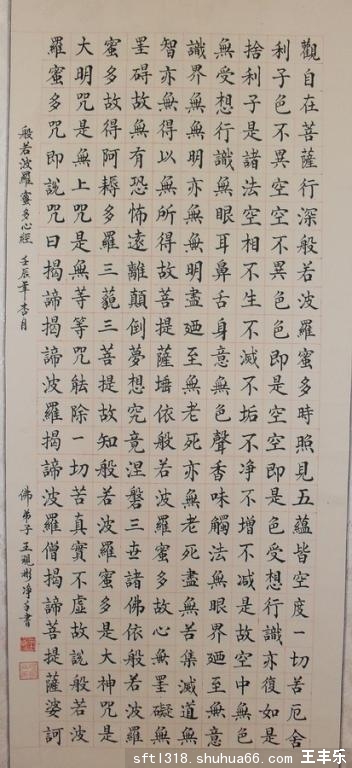 觀自在菩薩行深般若波羅蜜多時照見五蘊皆空度一切苦厄舍
利子色不異空空不異色色即是空空即是色受想行識亦復如是
捨利子是諸法空相不生不滅不垢不净不增不减是故空中無色
無受想行識無眼耳鼻舌身意無色聲香味觸法無眼界廼至無意
識界無無明亦無無明盡廼至無老死亦無老死盡無苦集滅道無
智亦無得以無所得故菩提薩埵依般若波羅蜜多故心無罣礙無
罣碍故無有恐怖遠離顛倒夢想究竟涅磐三世諸佛依般若波羅
蜜多故得阿耨多羅三藐三菩提故知般若波羅蜜多是大神咒是
大明咒是無上咒是無等等咒能除一切苦真實不虛故說般若波
羅蜜多咒即說咒曰揭諦揭諦波羅揭諦波羅僧揭諦菩提薩婆訶
般若波羅蜜多心經 壬辰年杏月
佛弟子王彬净手書
sftl318.shuhua66.com 王丰乐